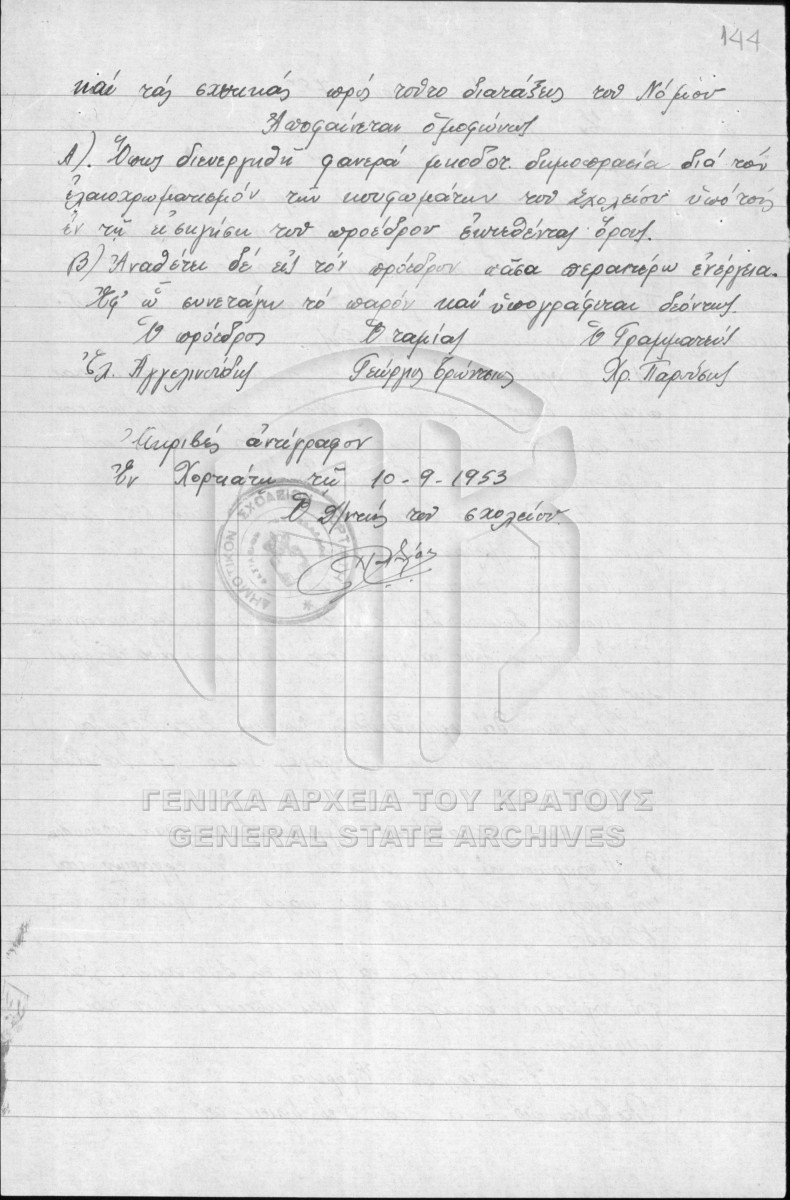 144
καί τάς σχετικάς πρός τοῦτο διατάξεις τοῦ Νόμου
Ἀποφαίνεται ὁμοφώνως
Α). Ὅπως διενεργηθῇ φανερά μειοδοτ. δημοπρασία διά τόν
ἐλαιοχρωματισμόν τῶν κουφωμάτων τοῦ Σχολείου ὑπό τούς
ἐν τῇ εἰσηγήσει τοῦ προέδρου ἐκτεθέντας ὅρους.
Β) Ἀναθέτει δέ εἰς τόν πρόεδρον πᾶσα περαιτέρω ἐνέργεια.
Ἐφ' ᾧ συνετάγη τό παρόν καί ὑπογράφεται δεόντως.
Ὁ πρόεδρος Ὁ ταμίας Ὁ Γραμματεύς
Γεώργιος Χρ.
Ἀκριβές ἀντίγραφον
Ἐν Χορτιάτῃ τῇ 10-9-1953
Ὁ Δ/ντής τοῦ σχολείου
ΔΗΜΟΤΙΚΟΝ ΣΧΟΛΕΙΟΝ
ΓΕΝΙΚΑ ΑΡΧΕΙΑ ΤΟΥ ΚΡΑΤΟΥΣ
GENERAL STATE ARCHIVES